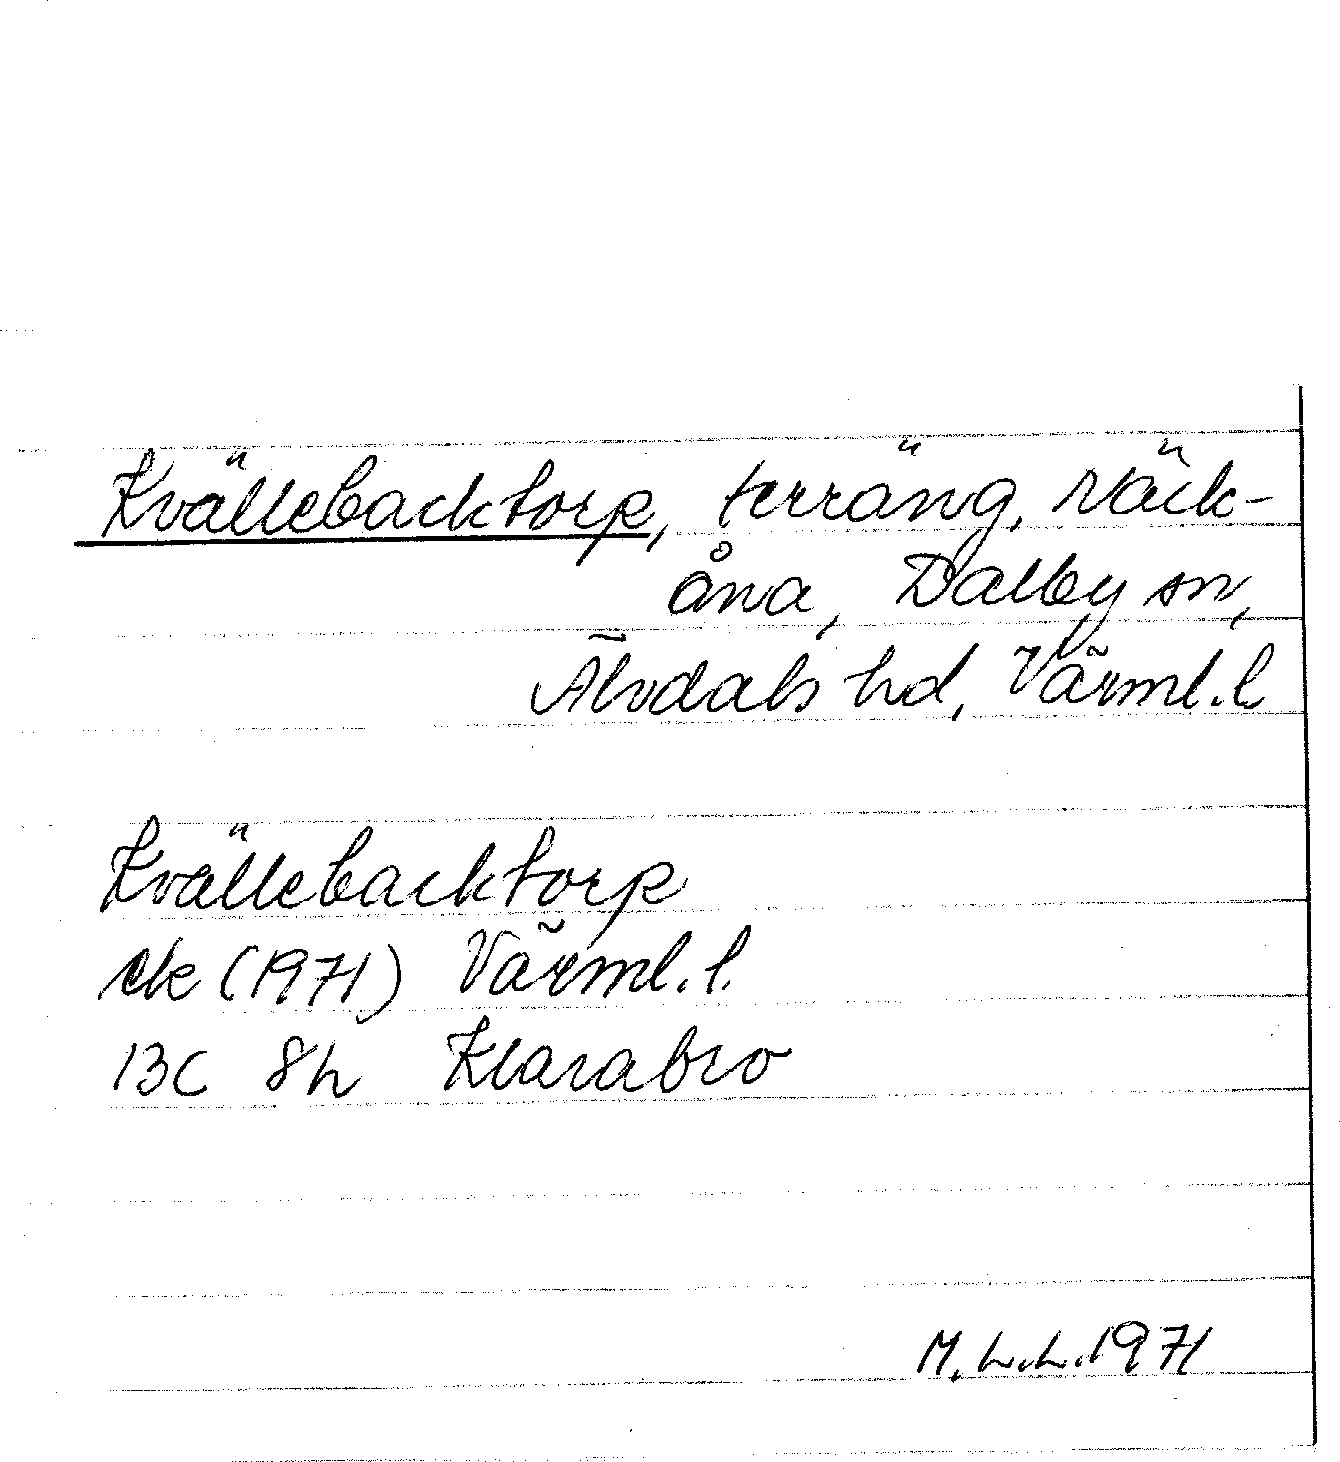 Kvällebacktorp, terräng, Näck-
åna, Dalby sn,
Älvdals hd, Värml. l
Kvällebacktorp
ek (1971) Värml. l.
13C 8h Klarabro
M. L. L. 1971